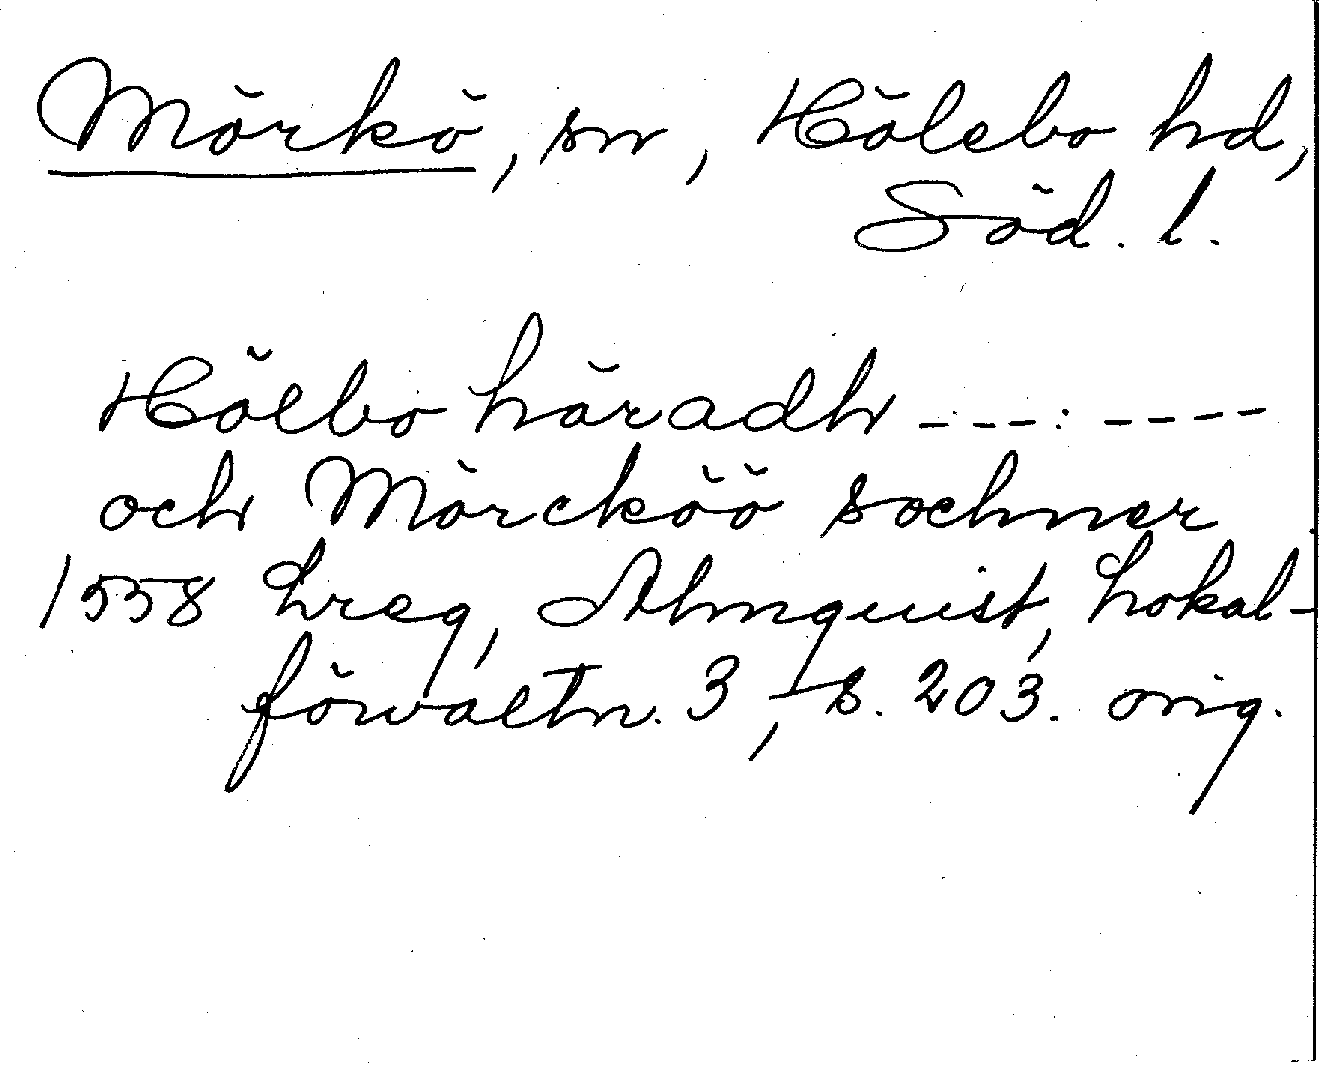 Mörkö, sn, Hölebo hd,
Söd. l.
Hölbo häradh - - - : - - - -
och Mörcköö sochner
1558 Lreg, Almquist, Lokal-
förvaltn. 3, s. 203. orig.